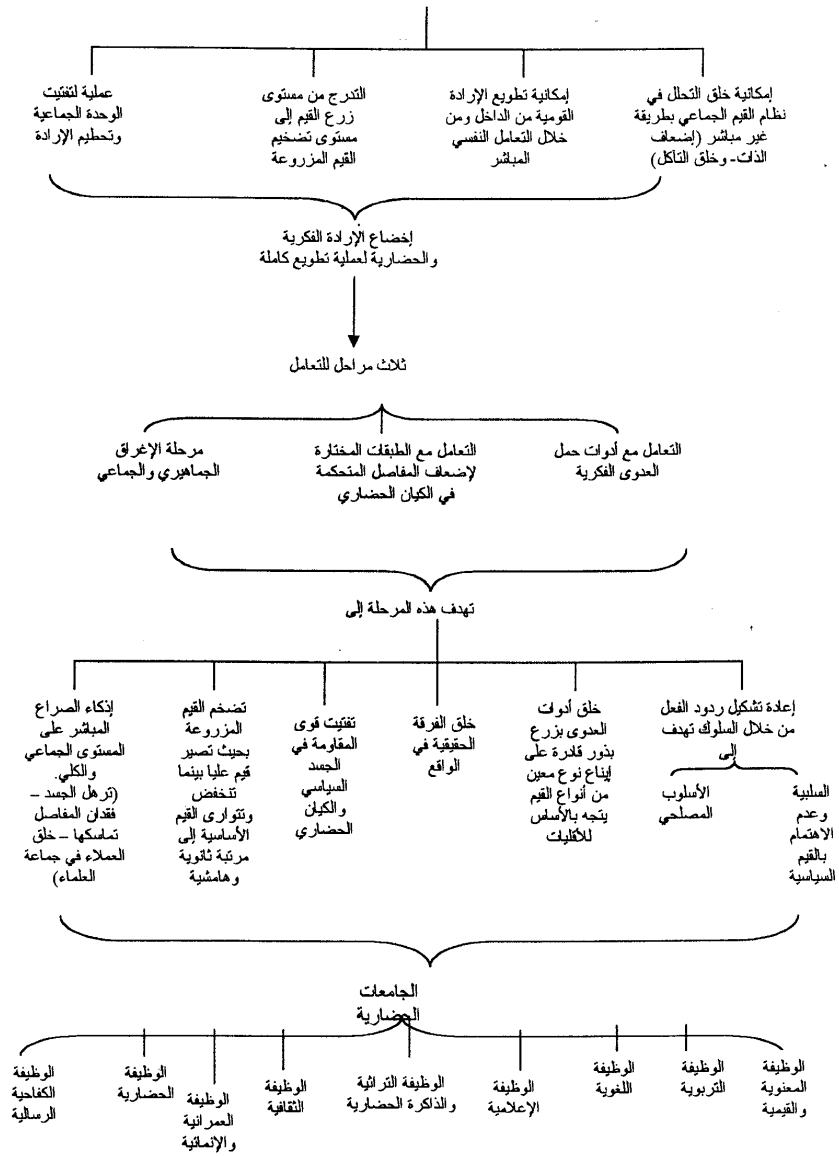 إمكانية خلق التحلل في
نظام القيم الجماعي بطريقة
غير مباشر (إضعاف
الذات- وخلق التآكل)
إمكانية تطويع الإرادة
القومية من الداخل ومن
خلال التعامل النفسي
المباشر
التدرج من مستوى
زرع القيم إلى
مستوى تضخيم
القيم المزروعة
عملية لتفتيت
الوحدة الجماعية
وتحطيم الإرادة
إخضاع الإرادة الفكرية
والحضارية لعملية تطويع كاملة
ثلاث مراحل للتعامل
التعامل مع أدوات حمل
العدوى الفكرية
التعامل مع الطبقات المختارة
لإضعاف المفاصل المتحكمة
في الكيان الحضاري
مرحلة الإغراق
الجماهيري والجماعي
تهدف هذه المرحلة إلى
إعادة تشكيل ردود الفعل
من خلال السلوك تهدف
إلى
السلبية
وعدم
الاهتمام
بالقيم
السياسية
الأسلوب
المصلحي
خلق أدوات
العدوى بزرع
بذور قادرة على
إيناع نوع معين
من أنواع القيم
يتجه بالأساس
للأقليات
خلق الفرقة
الحقيقية في
الواقع
تفتيت قوى
المقاومة في
الجسد
السياسي
والكيان
الحضاري
تضخم القيم
المزروعة
بحيث تصير
قيم عليا بينما
تنخفض
وتتوارى القيم
الأساسية إلى
مرتبة ثانوية
وهامشية
إذكاء الصراع
المباشر على
المستوى الجماعي
والكلي.
(ترهل الجسد –
فقدان المفاصل
تماسكها – خلق
العملاء في جماعة
العلماء)
الجامعات
الحضارية
الوظيفة
المعنوية
والقيمية
الوظيفة
التربوية
الوظيفة
اللغوية
الوظيفة
الإعلامية
الوظيفة التراثية
والذاكرة الحضارية
الوظيفة
الثقافية
الوظيفة
العمرانية
والإنمائية
الوظيفة
الحضارية
الوظيفة
الكفاحية
الرسالية